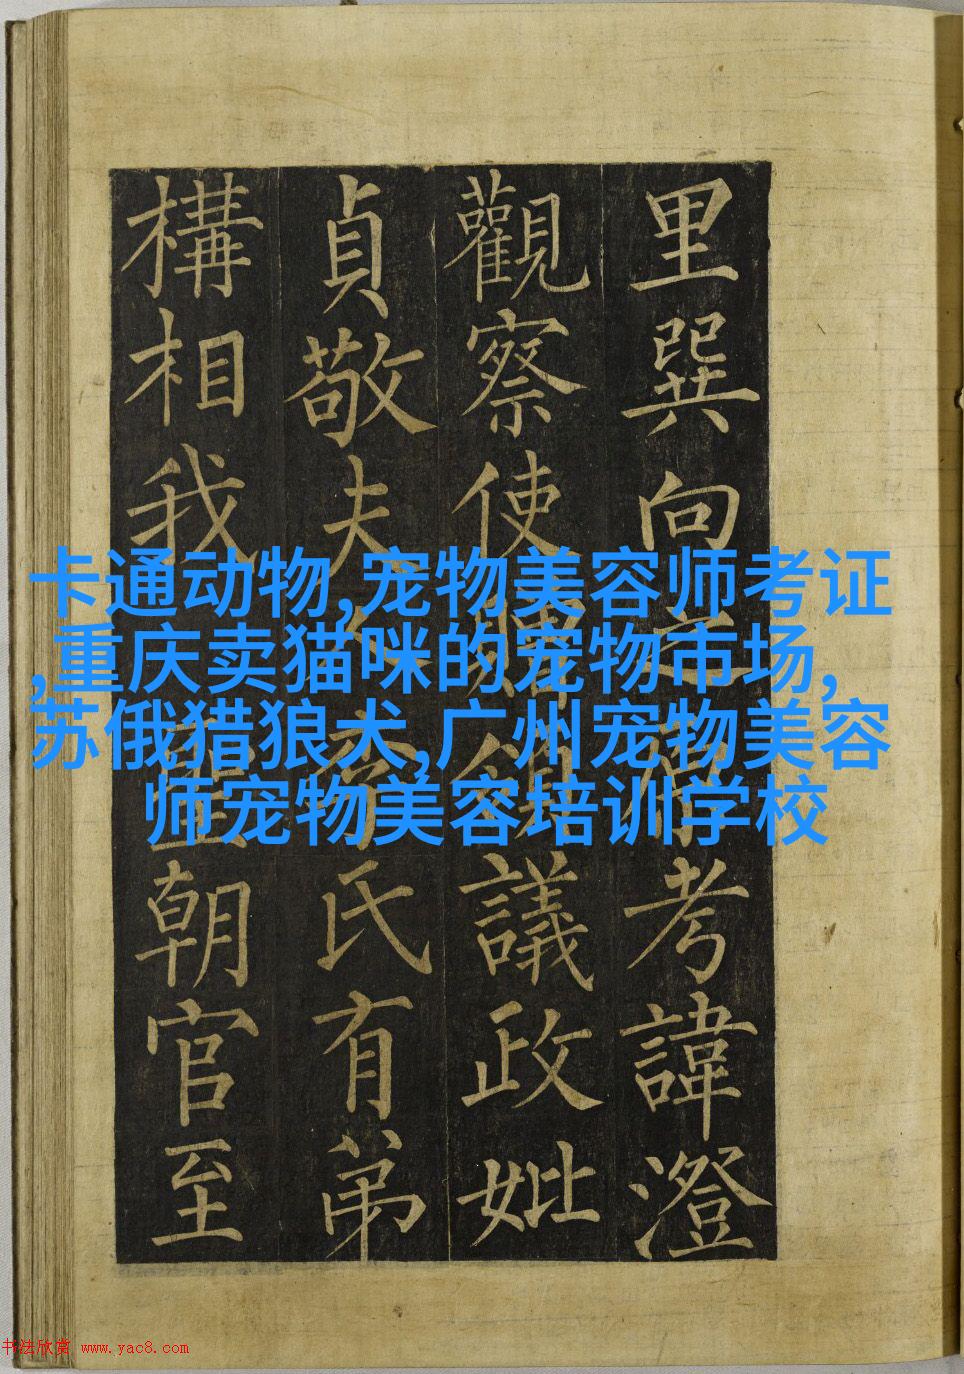 里巽向之考諱澄
觀察使贈議政妣
貞敬夫人氏有弟
構相我朝官至
卡通动物,宠物美容师考证
,重庆卖猫咪的宠物市场,
苏俄猎狼犬,广州宠物美容
师宠物美容培训学校
书法欣赏 www.yac8.com